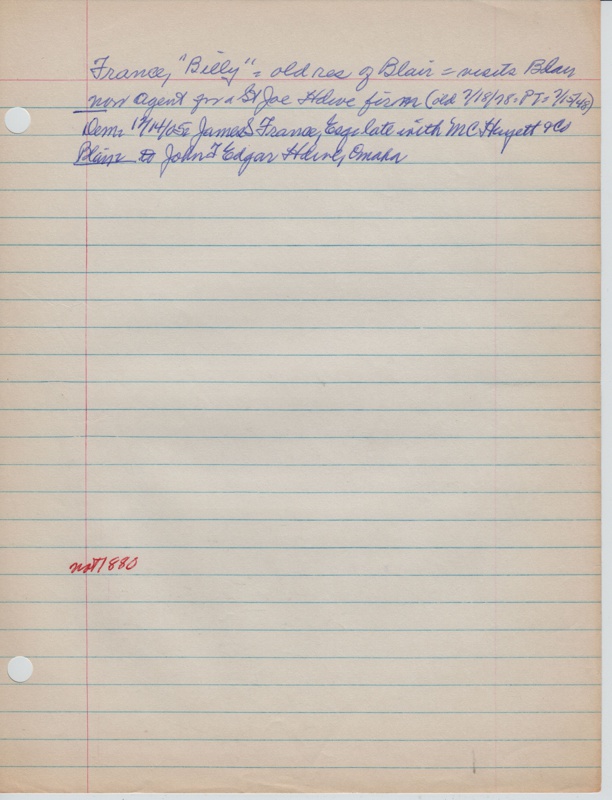 France, "Billy" = old res of Blair = visits Blair
now agent for a St Joe Hdwe firm (old 7/18/78 = PT = 7/15/48)
Dem. 12/14/05 = James S France, Esq. late with M.C. Huyett & Co
Blair to John T Edgar Hdwe, Omaha
not 1880